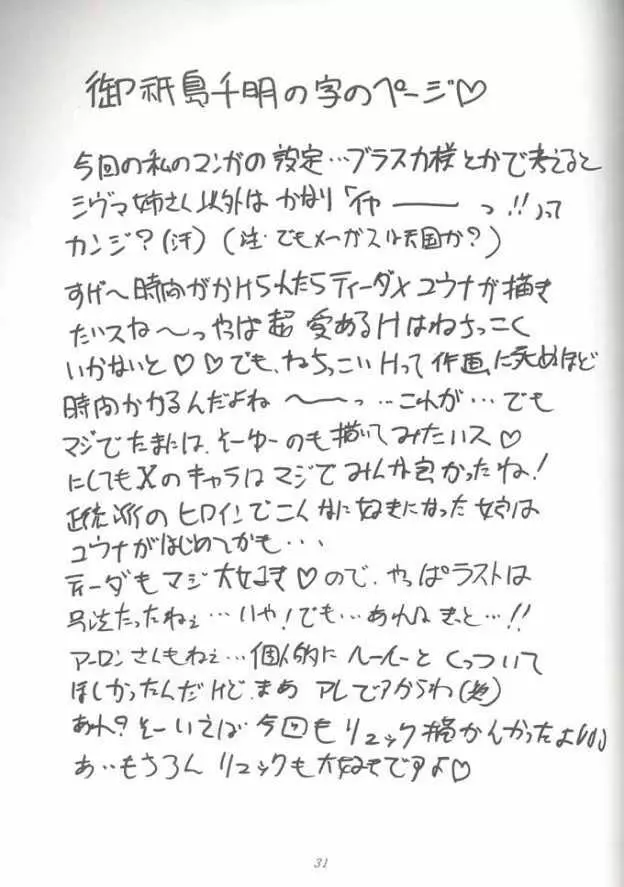 御祇島千明の字のページ♡
今回の私のマンガの設定…ブラスカ様とかで考えると
シヴァ姉さん以外は かなり「イヤーーっ!!」って
カンジ?(汗)(注・でもメーガスは天国か?)
すげ〜時間がかけられたらティーダ×ユウナが描き
たいスね〜っ やっぱ超 愛あるHはねちっこく
いかないと♡♡でも、ねちっこいHって作画に死ぬほど
時間かかるんだよね 〜ーっ…これが…でも
マジでたまには、そーゆーのも描いてみたいス♡
にしてもXのキャラはマジでみんな良かったね!
正統派のヒロインでこんなに好きになった娘は
ユウナがはじめてかも・・・
ティーダもマジ大好き♡ので、やっぱラストは
号泣だったねぇ…いや!でも…あれはきっと…!!
アーロンさんもねぇ…個人的にルールーとくっついて
ほしかったんだけど、まあ アレですからね
あれ?そーいえば今回もリュック描かんかったよ
あ…もちろん リュックも大好きですよ♡
31